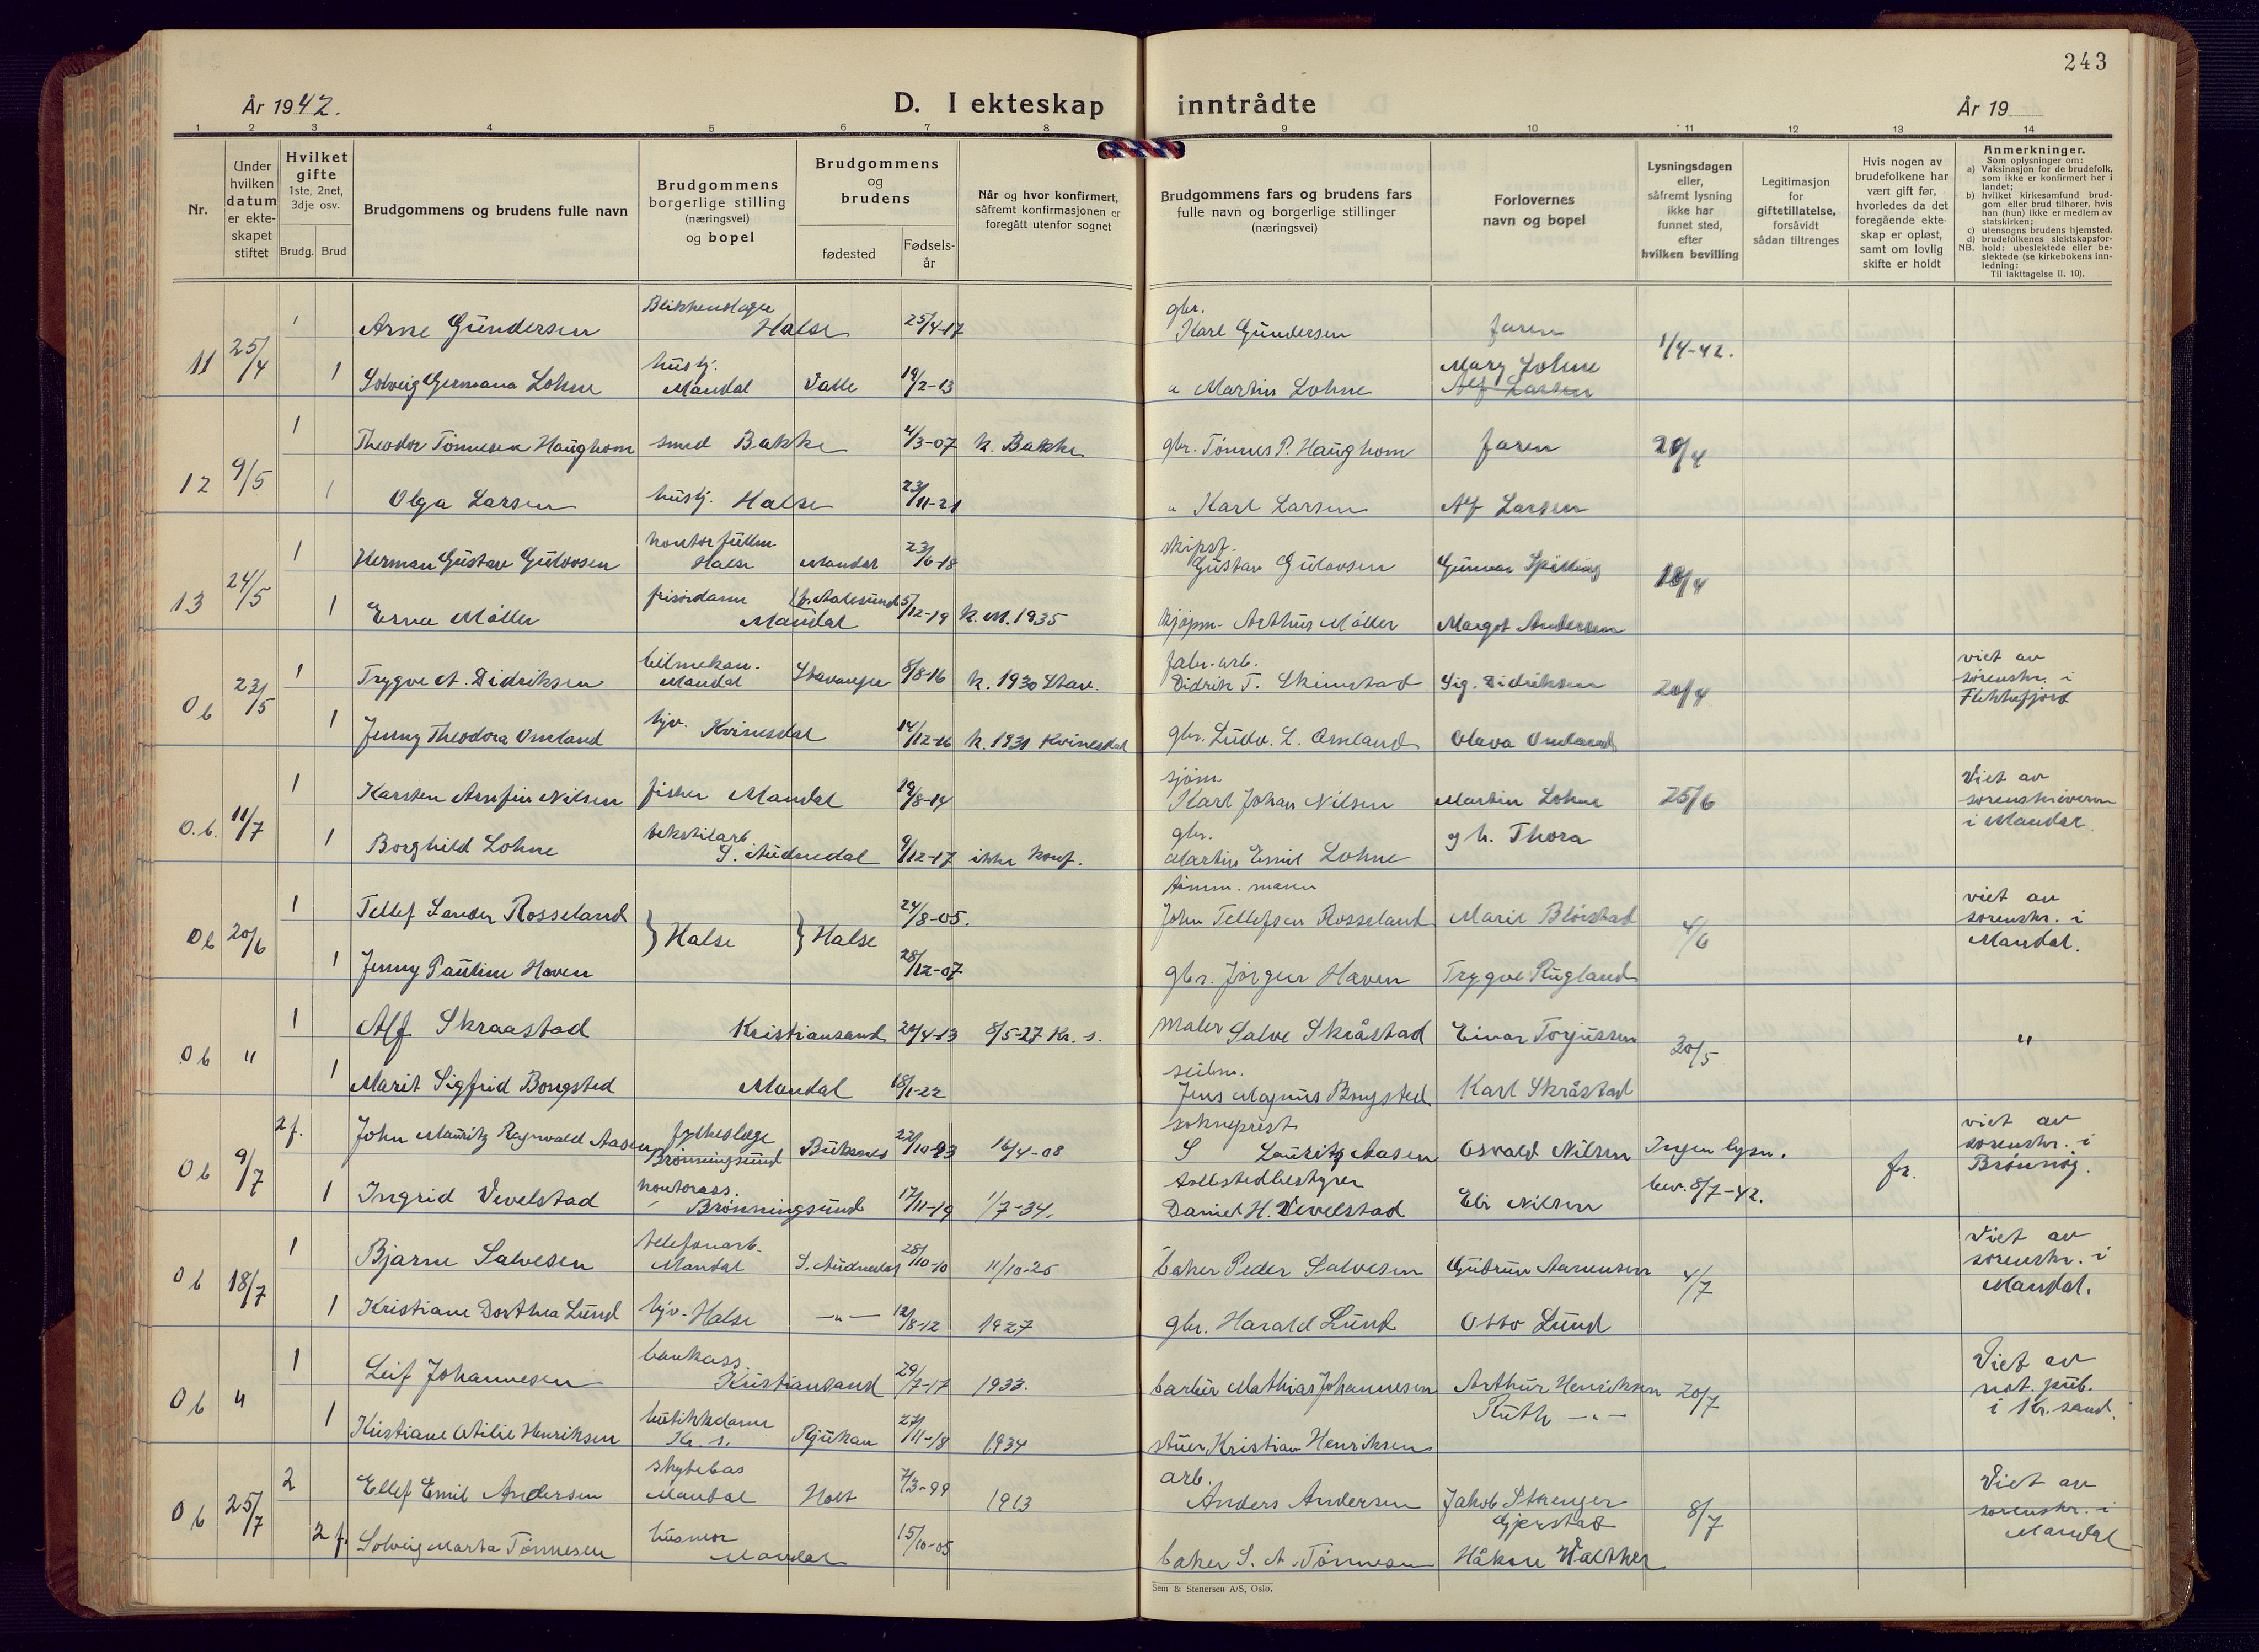 243
År 1942.
D. I ekteskap inntrådte
År 19
1 2 3 4 5 6 7 8 9 10 11 12 13 14
Nr.
Under hvilken datum er ekteskapet stiftet
Hvilket gifte 1ste, 2net, 3dje osv.
Brudg. Brud
Brudgommens og brudens fulle navn
Brudgommens borgerlige stilling (næringsvei) og bopel
Brudgommens og brudens
fødested
Fødsels-år
Når og hvor konfirmert, såfremt konfirmasjonen er foregått utenfor sognet
Brudgommens fars og brudens fars fulle navn og borgerlige stillinger (næringsvei)
Forlovernes navn og bopel
Lysningsdagen eller, såfremt lysning ikke har funnet sted, efter hvilken bevilling
Legitimasjon for giftetillatelse, forsåvidt sådan tiltrenges
Hvis nogen av brudefolkene har vært gift før, hvorledes da det foregående ekteskap er opløst, samt om lovlig skifte er holdt
Anmerkninger.
Som oplysninger om:
a) Vaksinasjon for de brudefolk, som ikke er konfirmert her i landet;
b) hvilket kirkesamfund brudgom eller brud tilhører, hvis han (hun) ikke er medlem av statskirken;
c) utensogns brudens hjemsted.
d) brudefolkenes slektskapsforhold: ubeslektede eller beslektede (se kirkebokens innledning:
NB.
Til iakttagelse II. 10).
11 25/4 1 Arne Gundersen Blikkenslager Halse 25/4-17 gbr. Karl Gundersen faren 1/4-42.
1 Solveig Germana Lohne hustj. Mandal Valle 19/2-13 " Martin Lohne Mary Lohne Alf Larsen
12 9/5 1 Theodor Tønnesen Haughom smed Bakke 4/3-07 k. Bakke gbr. Tønnes P. Haughom faren 20/4
1 Olga Larsen hustj. Halse 23/11-21 " Karl Larsen Alf Larsen
13 24/5 1 Herman Gustav Gulovsen kontorfullm. Halse Mandal 23/6-18 skipsf. Gustav Gulovsen Gunvor Spilling 18/4
1 Erna Møller frisørdame Mandal f. Aalesund 5/12-19 k. M. 1935 kjøpm. Arthur Møller Margot Andersen
0 b 23/5 1 Trygve A. Didriksen bilmekan. Mandal Stavanger 8/8-16 k. 1930 Stav. fabr. arb. Didrik T. Skimstad Sig. Didriksen 20/4 viet av sorenskr. i Flekkefjord
1 Jenny Theodora Omland hjv. Kvinesdal 14/12-16 k. 1931 Kvinesdal gbr. Ludv. L. Omland Olava Omland
0. b. 11/7 1 Karsten Arnfin Nilsen fisker Mandal 19/8-14 sjøm. Karl Johan Nilsen Martin Lohne 25/6 Viet av sorenskriveren i Mandal.
1 Borghild Lohne tekstilarb. S. Audnedal 9/12-17 ikke konf. gbr. Martin Emil Lohne og h. Thora
0 b 20/6 1 Tellef Sander Rosseland } Halse } Halse 24/8-05. tømm. mann John Tellefsen Rosseland Marie Bløistad 4/6 viet av sorenskr. i Mandal.
1 Jenny Pauline Haven 28/12-07 gbr. Jørgen Haven Trygve Rugland
0 b " 1 Alf Skraastad Kristiansand 20/4-13 8/5-27 Kr. s. maler Salve Skråstad Einar Torjussen 30/5 "
1 Marit Sigfrid Bongsted Mandal 18/1-22 seilm. Jens Magnus Bongsted Karl Skråstad
0 b 9/7 2 f. John Mauritz Ragnvald Aasen fylkeslege Brønnøysund Buksnes 22/10-93 16/4-08 sokneprest S Lauritz Aasen Osvald Nilsen Ingen lysn. fr. viet av sorenskr. i Brønnøy.
1 Ingrid Vevelstad kontorass. Brønnøysund 17/11-19 1/7-34. Daniel H. Vevelstad Eli Nilsen bev. 8/7-42.
0 b 18/7 1 Bjarne Salvesen telefonarb. Mandal S. Audnedal 28/10-10 11/10-25 baker Peder Salvesen Gudrun Aanensen 4/7 Viet av sorenskr. i Mandal.
1 Kristiane Dorthea Lund hjv. Halse —"— 12/8-12 1927 gbr. Harald Lund Otto Lund
0 b " 1 Leif Johannesen bankass. Kristiansand 29/7-17 1933. barber Mathias Johannesen Arthur Henriksen 20/7 Viet av not. pub. i Kr. sand.
1 Kristiane Otilie Henriksen butikkdame Kr. s. Rjukan 27/11-18 1934 stuer Kristian Henriksen Ruth —"—
0 b 25/7 2 Ellef Emil Andersen skytebas Mandal Holt 7/3-99 1913 arb. Anders Andersen Jakob Stenger Gjerstad 8/7 Viet av sorenskr. i Mandal
2 f. Solveig Marta Tønnesen husmor Mandal 15/10-05 baker S. A. Tønnesen Håkon Walther
Sem & Stenersen A/S, Oslo.